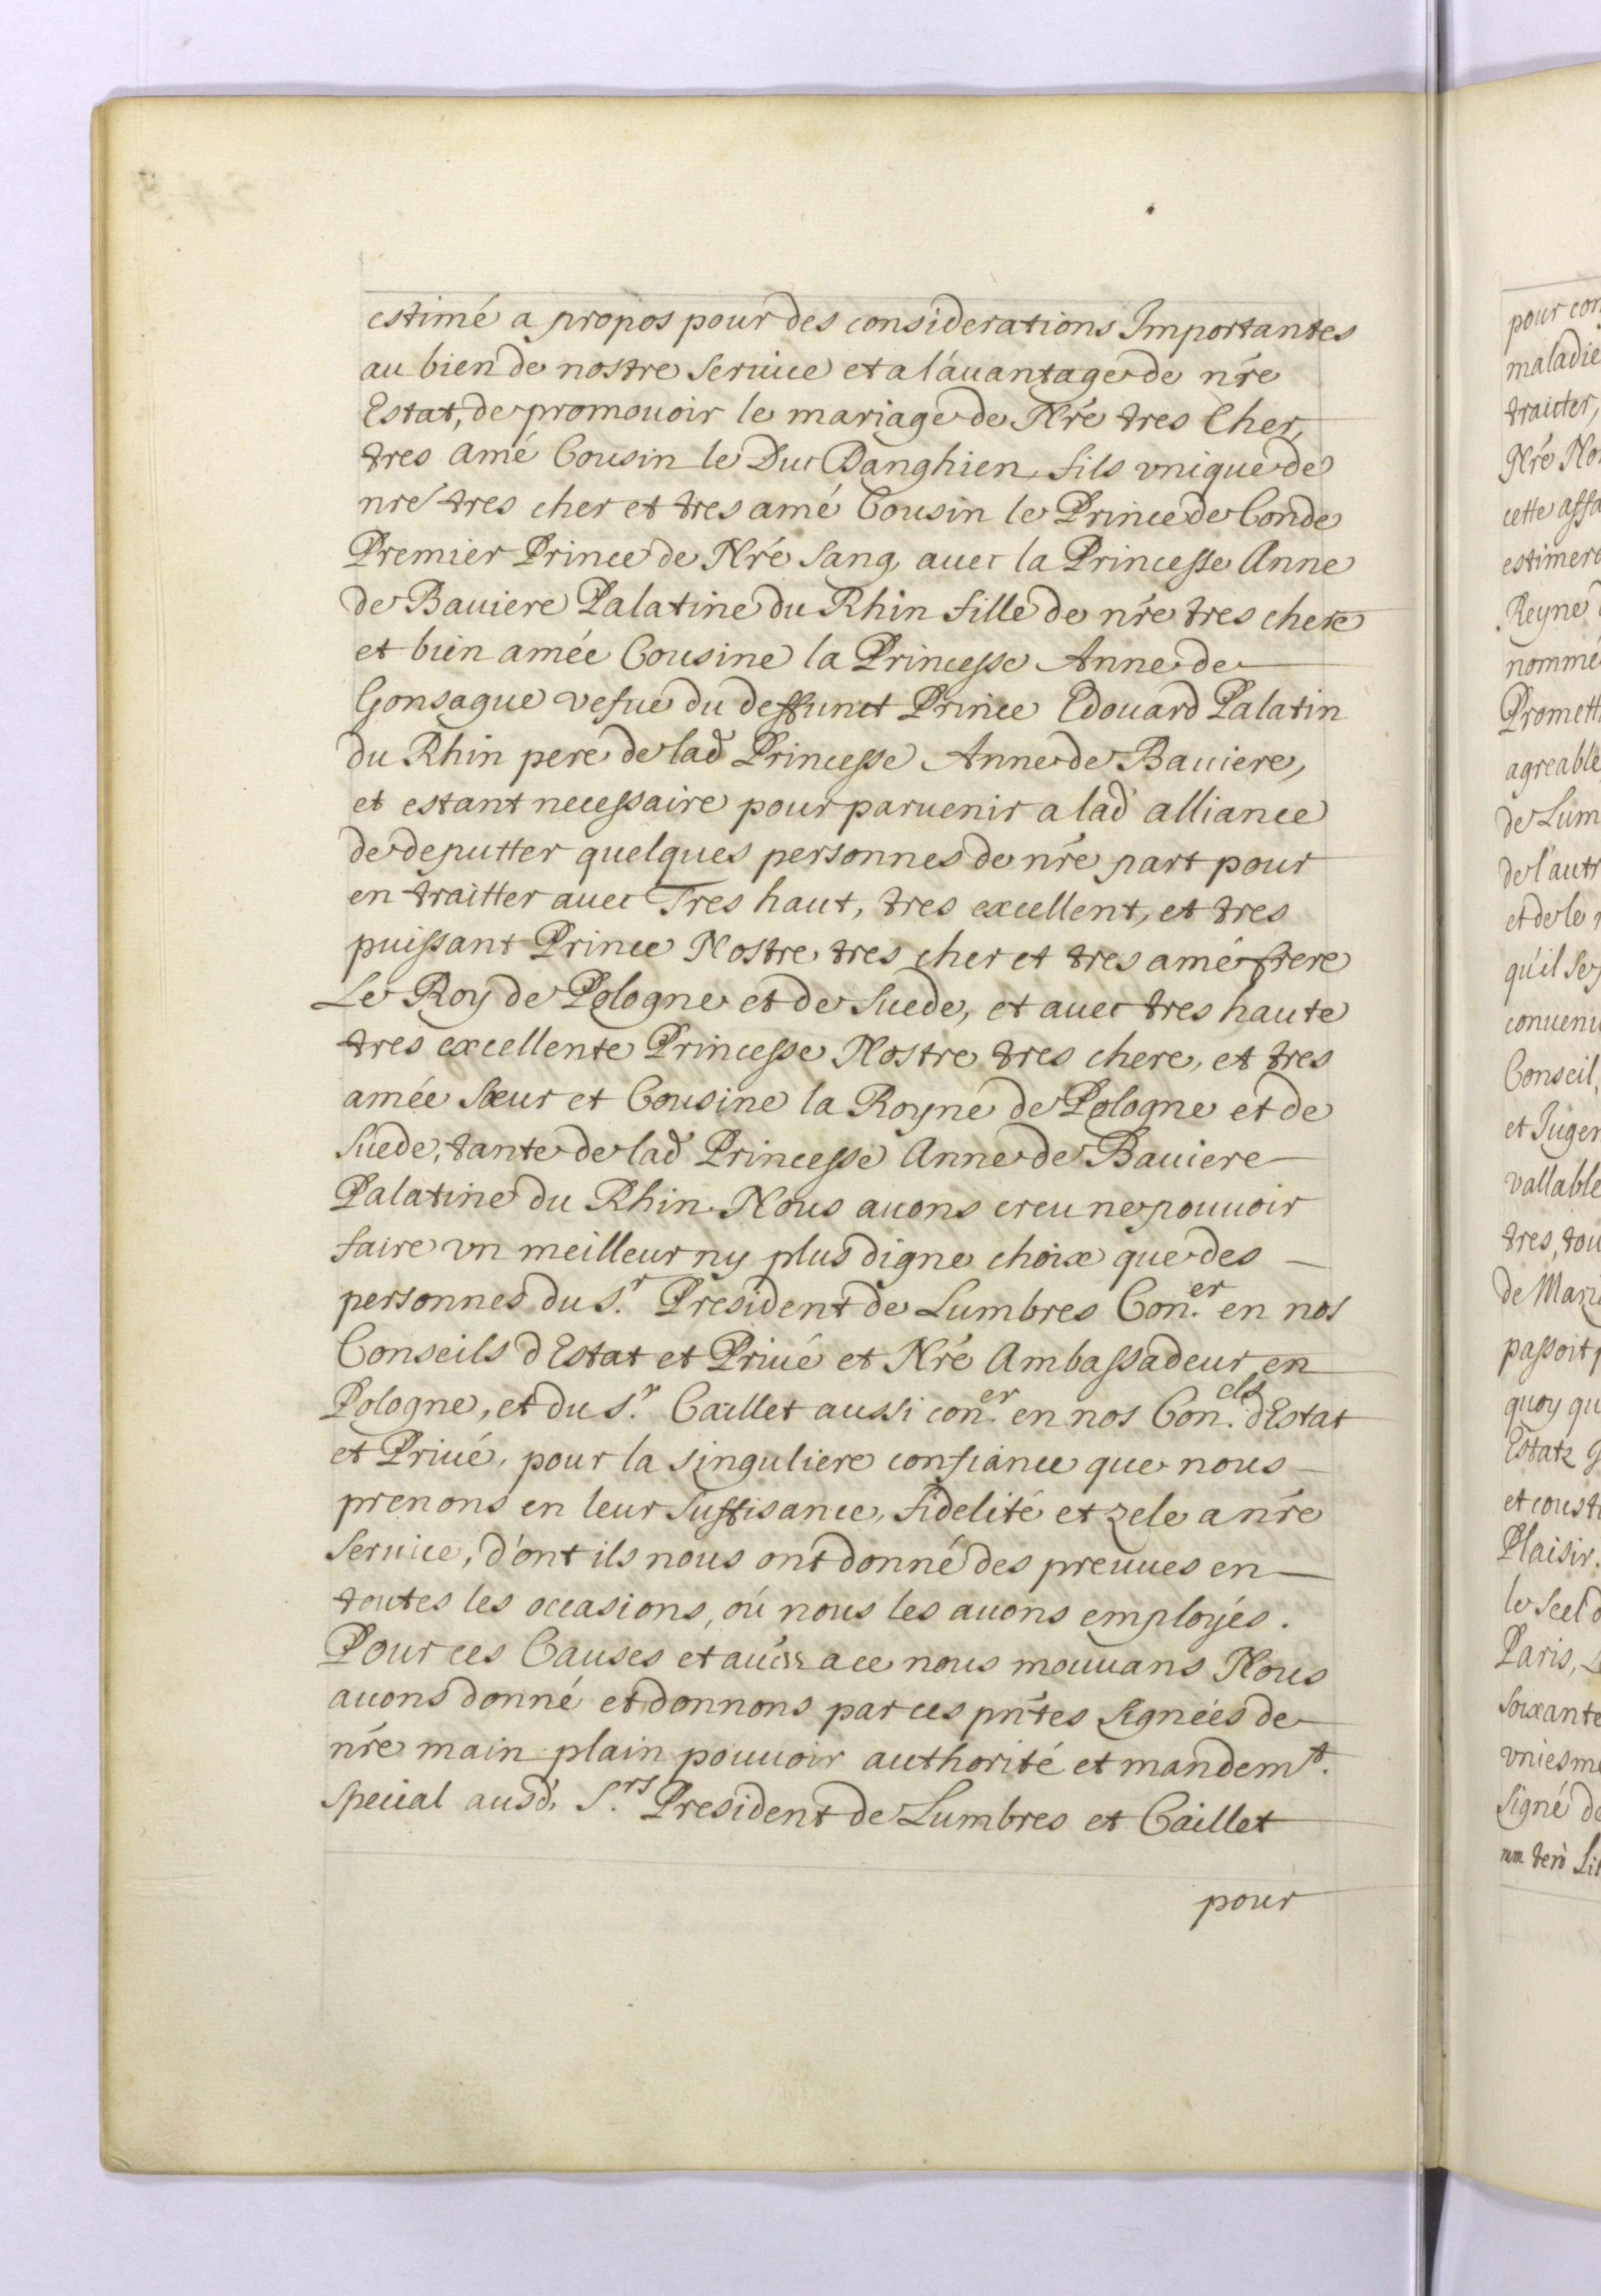 estimé a propos pour des considerations Importantes
au bien de nostre seruice et a l'auantage de nr̃e
Estat, de promouoir le mariage de Nr̃e tres Cher,
tres amé Cousin le Duc Danghien, fils vnique de
nr̃e tres cher et tres amé Cousin le Prince de Condé
Premier Prince de Nr̃e sang, auec la Princesse Anne
de Bauiere Palatine du Rhin fille de nr̃e tres chere
et bien amée Cousine la Princesse Anne de
Gonsague vefue du deffunct Prince Edouard Palatin
du Rhin pere de lad Princesse Anne de Bauiere,
et estant necessaire pour paruenir a lad alliance
de deputter quelques personnes de nr̃e part pour
en traitter auec Tres haut, tres excellent, et tres
puissant Prince Nostre tres cher et tres amé frere
Le Roy de Pologne et de Suede, et auec tres haute
tres excellente Princesse Nostre tres chere, et tres
amée Sœur et Cousine la Royne de Pologne et de
Suede, tante de lad Princesse Anne de Bauiere
Palatine du Rhin. Nous auons creu ne pouuoir
faire vn meilleur ny plus digne choix que des
personnes du S.r President de Lumbres Con.er en nos
Conseils d'Estat et Priué et Nr̃e Ambassadeur en
Pologne, et du S.r Caillet aussi con.er en nos Con.els d'Estat
et Priué, pour la singuliere confiance que nous
prenons en leur suffisance, fidelité et zele a nr̃e
Seruice, d'ont ils nous ont donné des preuues en
toutes les occasions, où nous les auons employés.
Pour ces Causes et au͂es a ce nous mouuans Nous
auons donné et donnons par ces pn̄tes signées de
nr̃e main plain pouuoir authorité et mandem.t
special ausd. S.rs President de Lumbres et Caillet
pour
pour con
maladie
traitter,
Nr̃e No
cette affa
estimero
Reyne
nommé
Promett
agreable
de Lum
de l'autr
et de le
qu'il se
conuenu
Conseil,
et Iuger
vallable
tres, tou
de Mari
passoit
quoy qu
Estatz
et coust
Plaisir.
le Seel d
Paris,
soixante
vniesme
Signé de